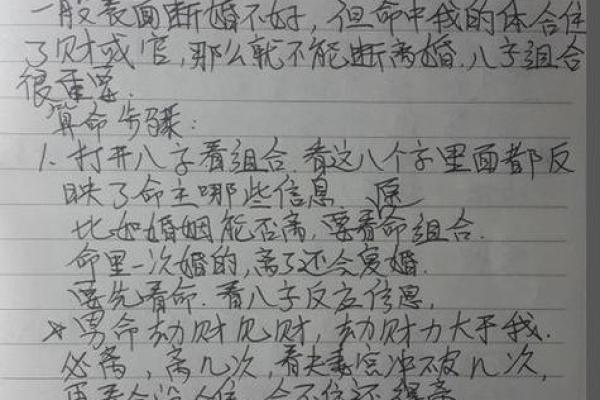 一般表面断婚不好，但命中我的体合住
了财或官，那么就不能断离婚，八字组合
很重要.
算命步骤：
1. 打开八字看组合. 看这八个字里面都反
映了命主哪些信息 原
比如婚姻能否离，要看命组合.
命里一次婚的，离了还会复婚.
要先看命. 看八字反应信息，
☆男命劫财见财，劫财力大于我.
必离，离几次，看夫妻宫冲不破几次，
再看合没合住，合不住还得离